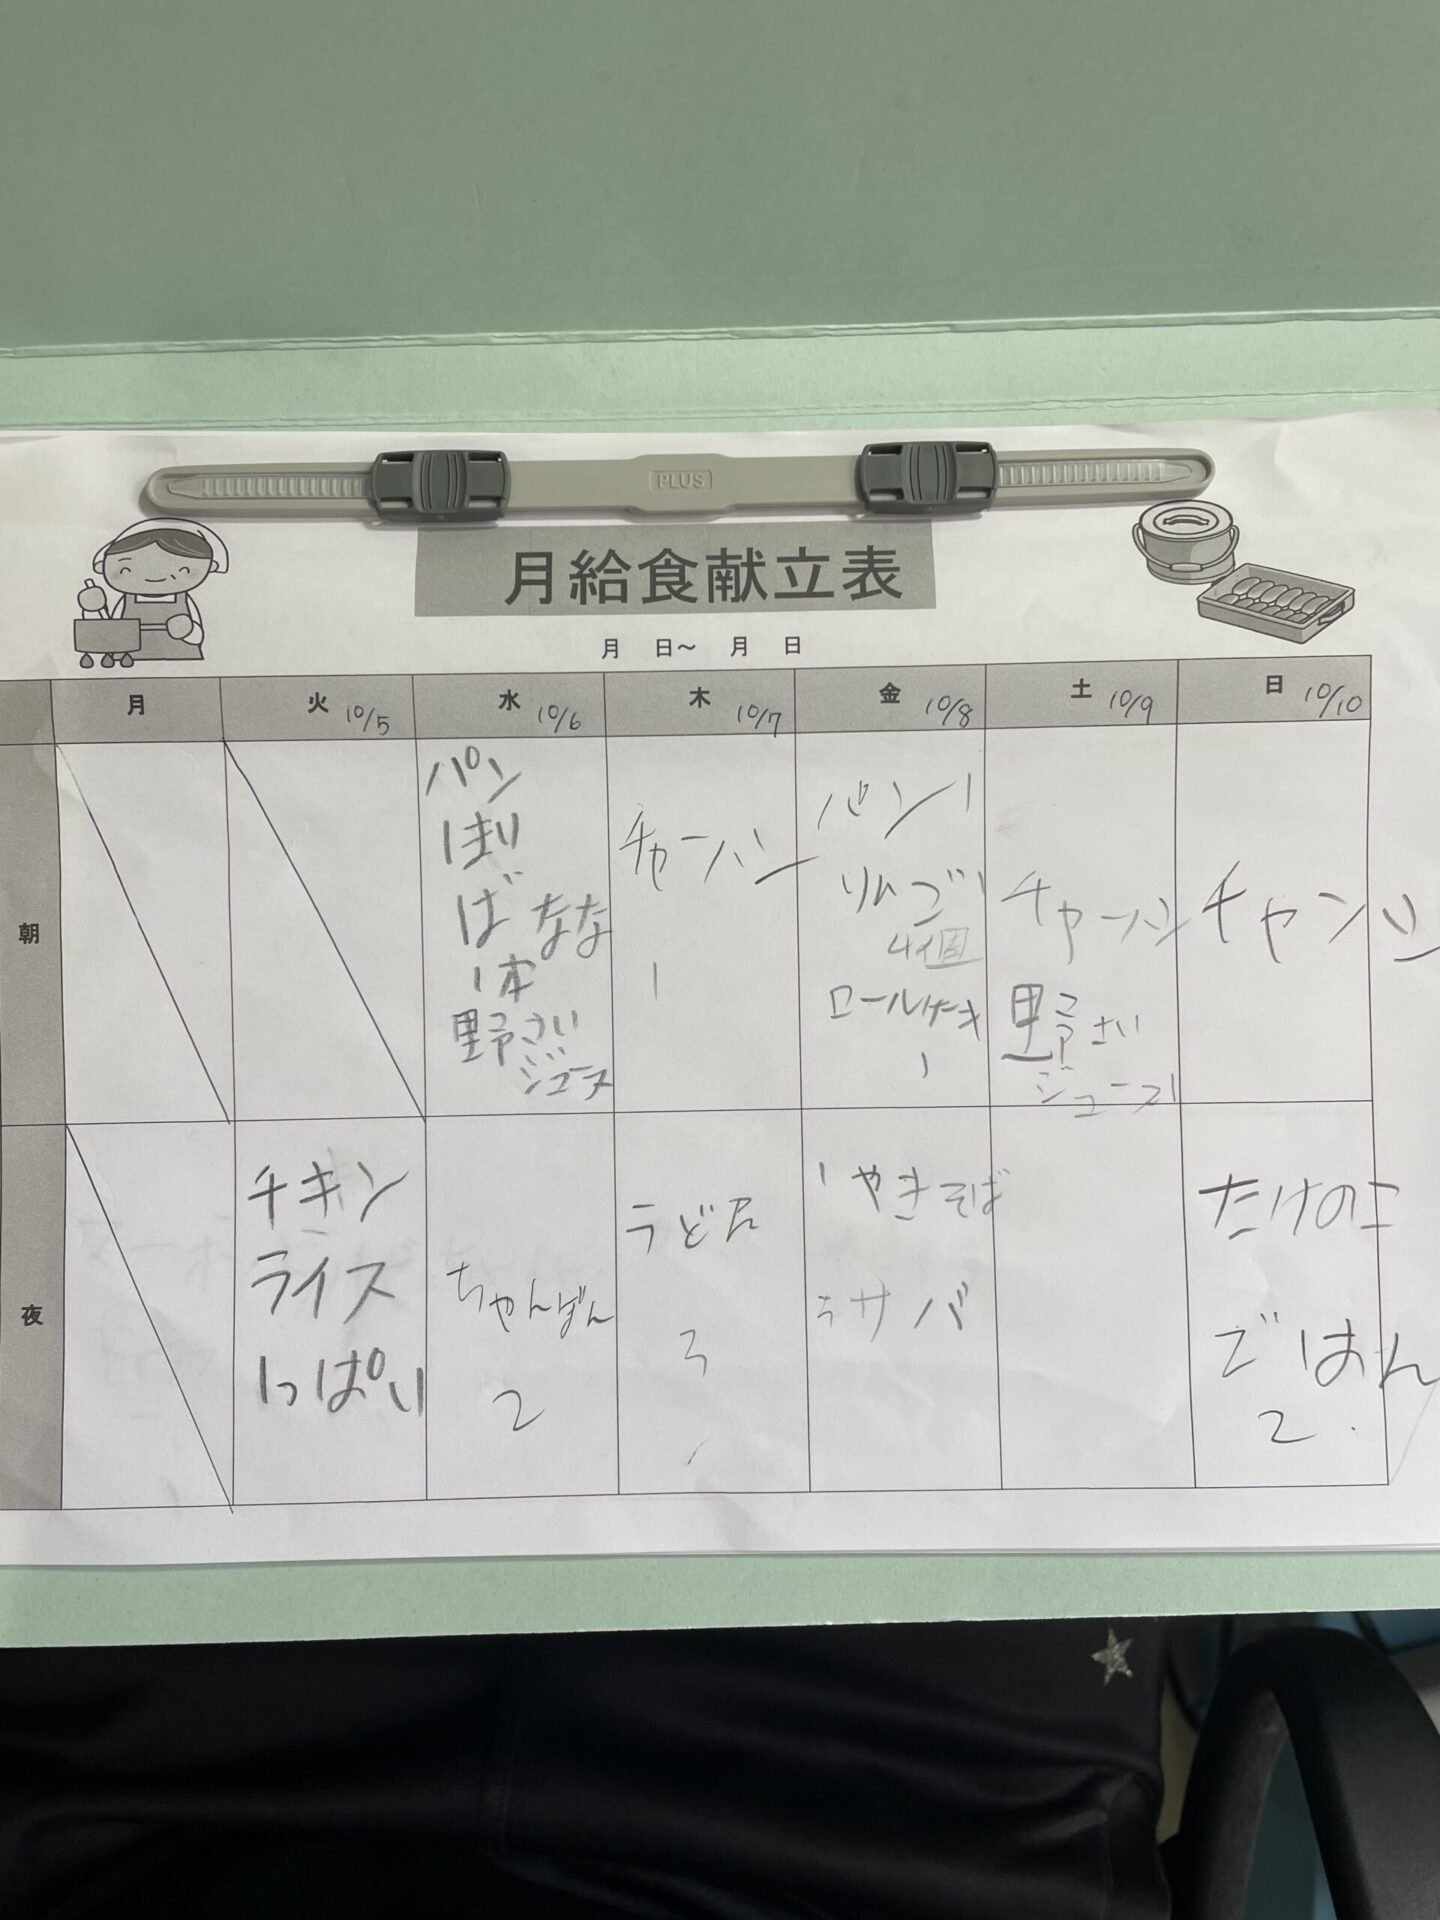 PLUS
月給食献立表
月 日～ 月 日
月 火 10/5 水 10/6 木 10/7 金 10/8 土 10/9 日 10/10
朝
パン
ばなな
1本
野さい
ジュース
チャーハン
1
パン1
りんご
4個
ロールケーキ
1
チャーハン
野さい
ジュース1
チャンハ
夜
チキン
ライス
いっぱい
ちゃんぽん
2
うどん
3
1 やきそば
サバ
たけのこ
ごはん
2